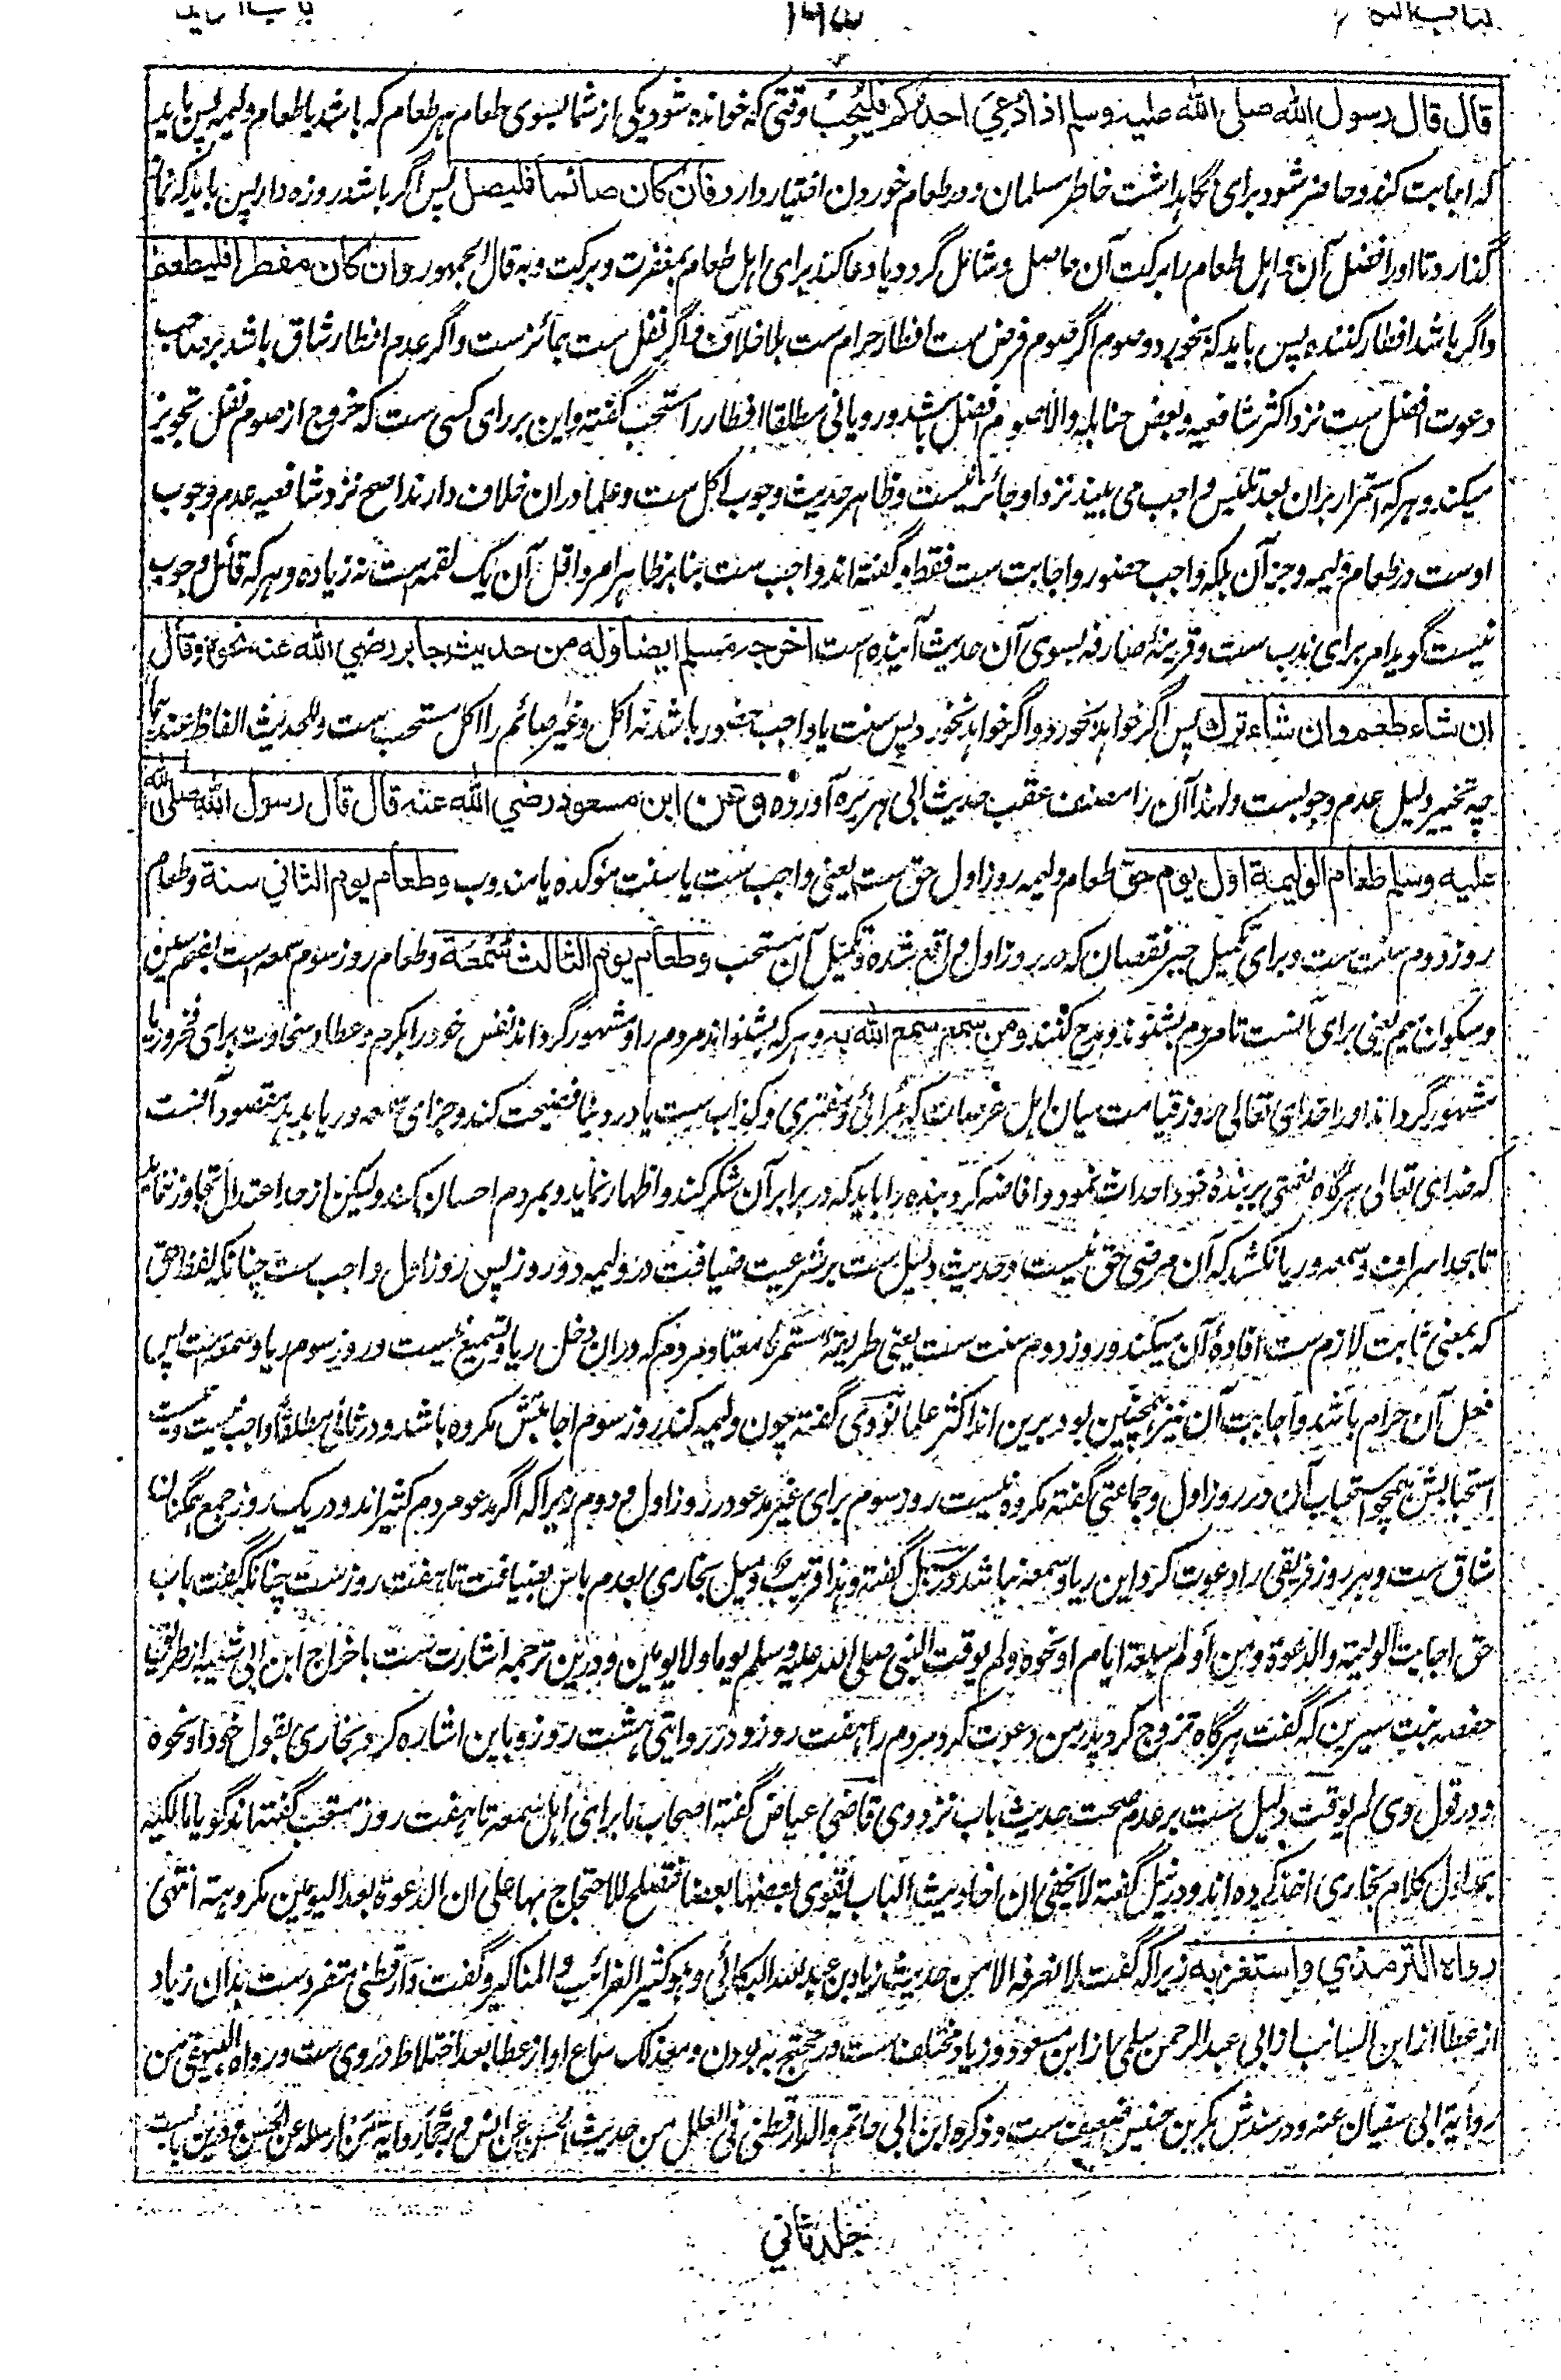 ۱۶۳
قال قال رسول الله صلى الله عليه وسلم اذا دعي احدكم فليجب وقتی که خوانده شود یکی از شما بسوی طعام هر طعام که باشد یا طعام ولیمه پس باید
که اجابت کند و حاضر شود برای نگاهداشت خاطر مسلمان و در طعام خوردن اختیار دارد فان كان صائما فليصل پس اگر باشد روزه دار پس باید که نماز
گذارد تا او را فضل آن و اهل طعام را برکت آن حاصل و شامل گردد یا دعا کند برای اهل طعام بمغفرت و برکت وبه قال الجمهور وان كان مفطرا فليطعم
واگر باشد افطار کننده پس باید که بخورد و صوم اگر صوم فرض ست افطار حرام ست بلا خلاف و اگر نفل ست جائزست و اگر عدم افطار شاق باشد بر صاحب
دعوت افضل ست نزد اکثر شافعیه و بعض حنابله والا صوم افضل باشد و رویانی مطلقا افطار را مستحب گفته و این بر رای کسی ست که خروج از صوم نفل تجویز
میکند و هر که استمرار بران بعد تلبس واجب می بیند نزد او جائز نیست و ظاهر حدیث وجوب اکل ست و علما دران خلاف دارند اصح نزد شافعیه عدم وجوب
اوست در طعام ولیمه و جز آن بلکه واجب حضور و اجابت ست فقط و گفته اند واجب ست بنا بر ظاهر امر و اقل آن یک لقمه ست نه زیاده و هر که قائل وجوب
نیست گوید امر برای ندب ست و قرینه صارفه بسوی آن حدیث آینده ست اخرجه مسلم ايضا وله من حديث جابر رضي الله عنه نحوه وقال
ان شاء طعم وان شاء ترك پس اگر خواهد بخورد و اگر خواهد نخورد پس سنت یا واجب حضور باشد نه اکل و غیر صائم را اکل مستحب ست وللحدیث الفاظ عندهما
چه تخییر دلیل عدم وجوبست و لهذا آن را مصنف عقب حدیث ابی هریره آورده وعن ابن مسعود رضي الله عنه قال قال رسول الله صلى الله
عليه وسلم طعام الوليمة اول يوم حق طعام ولیمه روز اول حق ست یعنی واجب ست یا سنت مؤکده یا مندوب وطعام يوم الثاني سنة وطعام
روز دوم سنت ست و برای تکمیل جبر نقصان که در روز اول واقع شده و تکمیل آن مستحب وطعام يوم الثالث سمعة و طعام روز سوم سمعه ست بضم سین
و سکون میم یعنی برای آنست تا مردم بشنوند و مدح کنند ومن سمع سمع الله به و هر که بشنواند مردم را و مشهور گرداند نفس خود را بکرم و عطا و سخاوت برای فخر و ریا
مشهور گرداند او را خدای تعالی روز قیامت میان اهل عرصات که مرائی و مفتری و کذاب ست یا در دنیا فضیحت کند و جزای سمعه و ریا بدهد مقصود آنست
که خدای تعالی هرگاه نعمتی بر بنده خود احداث نمود و افاضه کرد بنده را باید که در برابر آن شکر کند و اظهار نماید و بمردم احسان کند و لیکن از حد اعتدال تجاوز ننماید
تا بحد اسراف و سمعه و ریا نکشد که آن مرضی حق نیست و حدیث دلیل ست بر شرعیت ضیافت در ولیمه دو روز پس روز اول واجب ست چنانکه لفظ حق
که بمعنی ثابت لازم ست افاده آن میکند و روز دوم سنت ست یعنی طریقه مستمره معتاد مردم که دران دخل ریا و تسمیع نیست و روز سوم ریا و سمعه ست پس
فعل آن حرام باشد و اجابت آن نیز همچنین بود برین اند اکثر علما نووی گفته چون ولیمه کند روز سوم اجابتش مکروه باشد و در ثانی مطلقا واجب نیست و نیست
استحبابش همچو استحباب آن در روز اول و جماعتی گفته مکروه نیست روز سوم برای غیر مدعو در روز اول و دوم زیرا که اگر مدعو مردم کثیر اند و در یک روز جمع همگنان
شاق ست و هر روز فریقی را دعوت کرد این ریا و سمعه نباشد در سبل گفته و هذا قریب و میل بخاری بعدم باس بضیافت تا هفت روز ست چنانکه گفت باب
حق اجابت الولیمة والدعوة ومن اولم سبعة ایام او نحوه ولم یوقت النبی صلی الله علیه وسلم یوما ولا یومین و درین ترجمه اشارت ست باخراج ابن ابی شیبه از طریق
حفصه بنت سیرین که گفت هرگاه تزوج کرد پدر من دعوت کرد مردم را هفت روز و در روایتی هشت روز و باین اشاره کرد بخاری بقول خود او نحوه
و در قول وی لم یوقت دلیل ست بر عدم صحت حدیث باب نزد وی قاضی عیاض گفته اصحاب ما برای اهل سعه تا هفت روز مستحب گفته اند گویا مالکیه
بمدلول کلام بخاری اخذ کرده اند و در نیل گفته لا یخفی ان احادیث الباب یقوی بعضها بعضا فتصلح للاحتجاج بها علی ان الدعوة بعد الیومین مکروهة انتهی
رواه الترمذي واستغربه زیرا که گفت لا نعرفه الا من حدیث زیاد بن عبد الله البکائی وهو کثیر الغرائب والمناکیر و گفت دارقطنی متفرد ست بدان زیاد
از عطا ابن السائب از ابی عبد الرحمن سلمی از ابن مسعود و زیاد مختلف ست در محتج به بودن و معذلک سماع او از عطا بعد اختلاط وی ست و رواه البیهقی من
روایة ابی سفیان عنه و در سندش بکر بن خنیس ضعیف ست و ذکره ابن ابی حاتم والدارقطنی فی العلل من حدیث الحسن عن انس و رجحا روایة من ارسله عن الحسن و درین باب ست
جلد ثاني